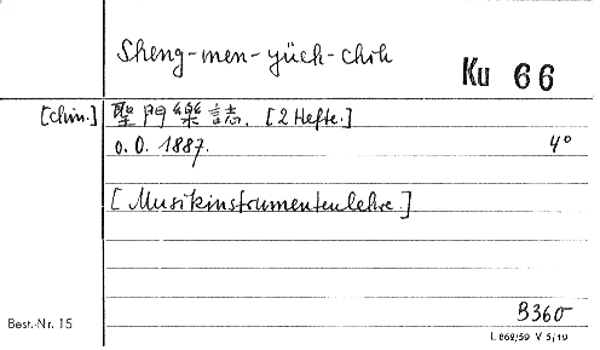 Sheng-men-yüeh-chih
Ku 66
[chin.] 聖門樂誌. [2 Hefte.]
o. O. 1887. 4°
[Musikinstrumentenlehre.]
B360
Best.-Nr. 15
L 868/59 V 5/19